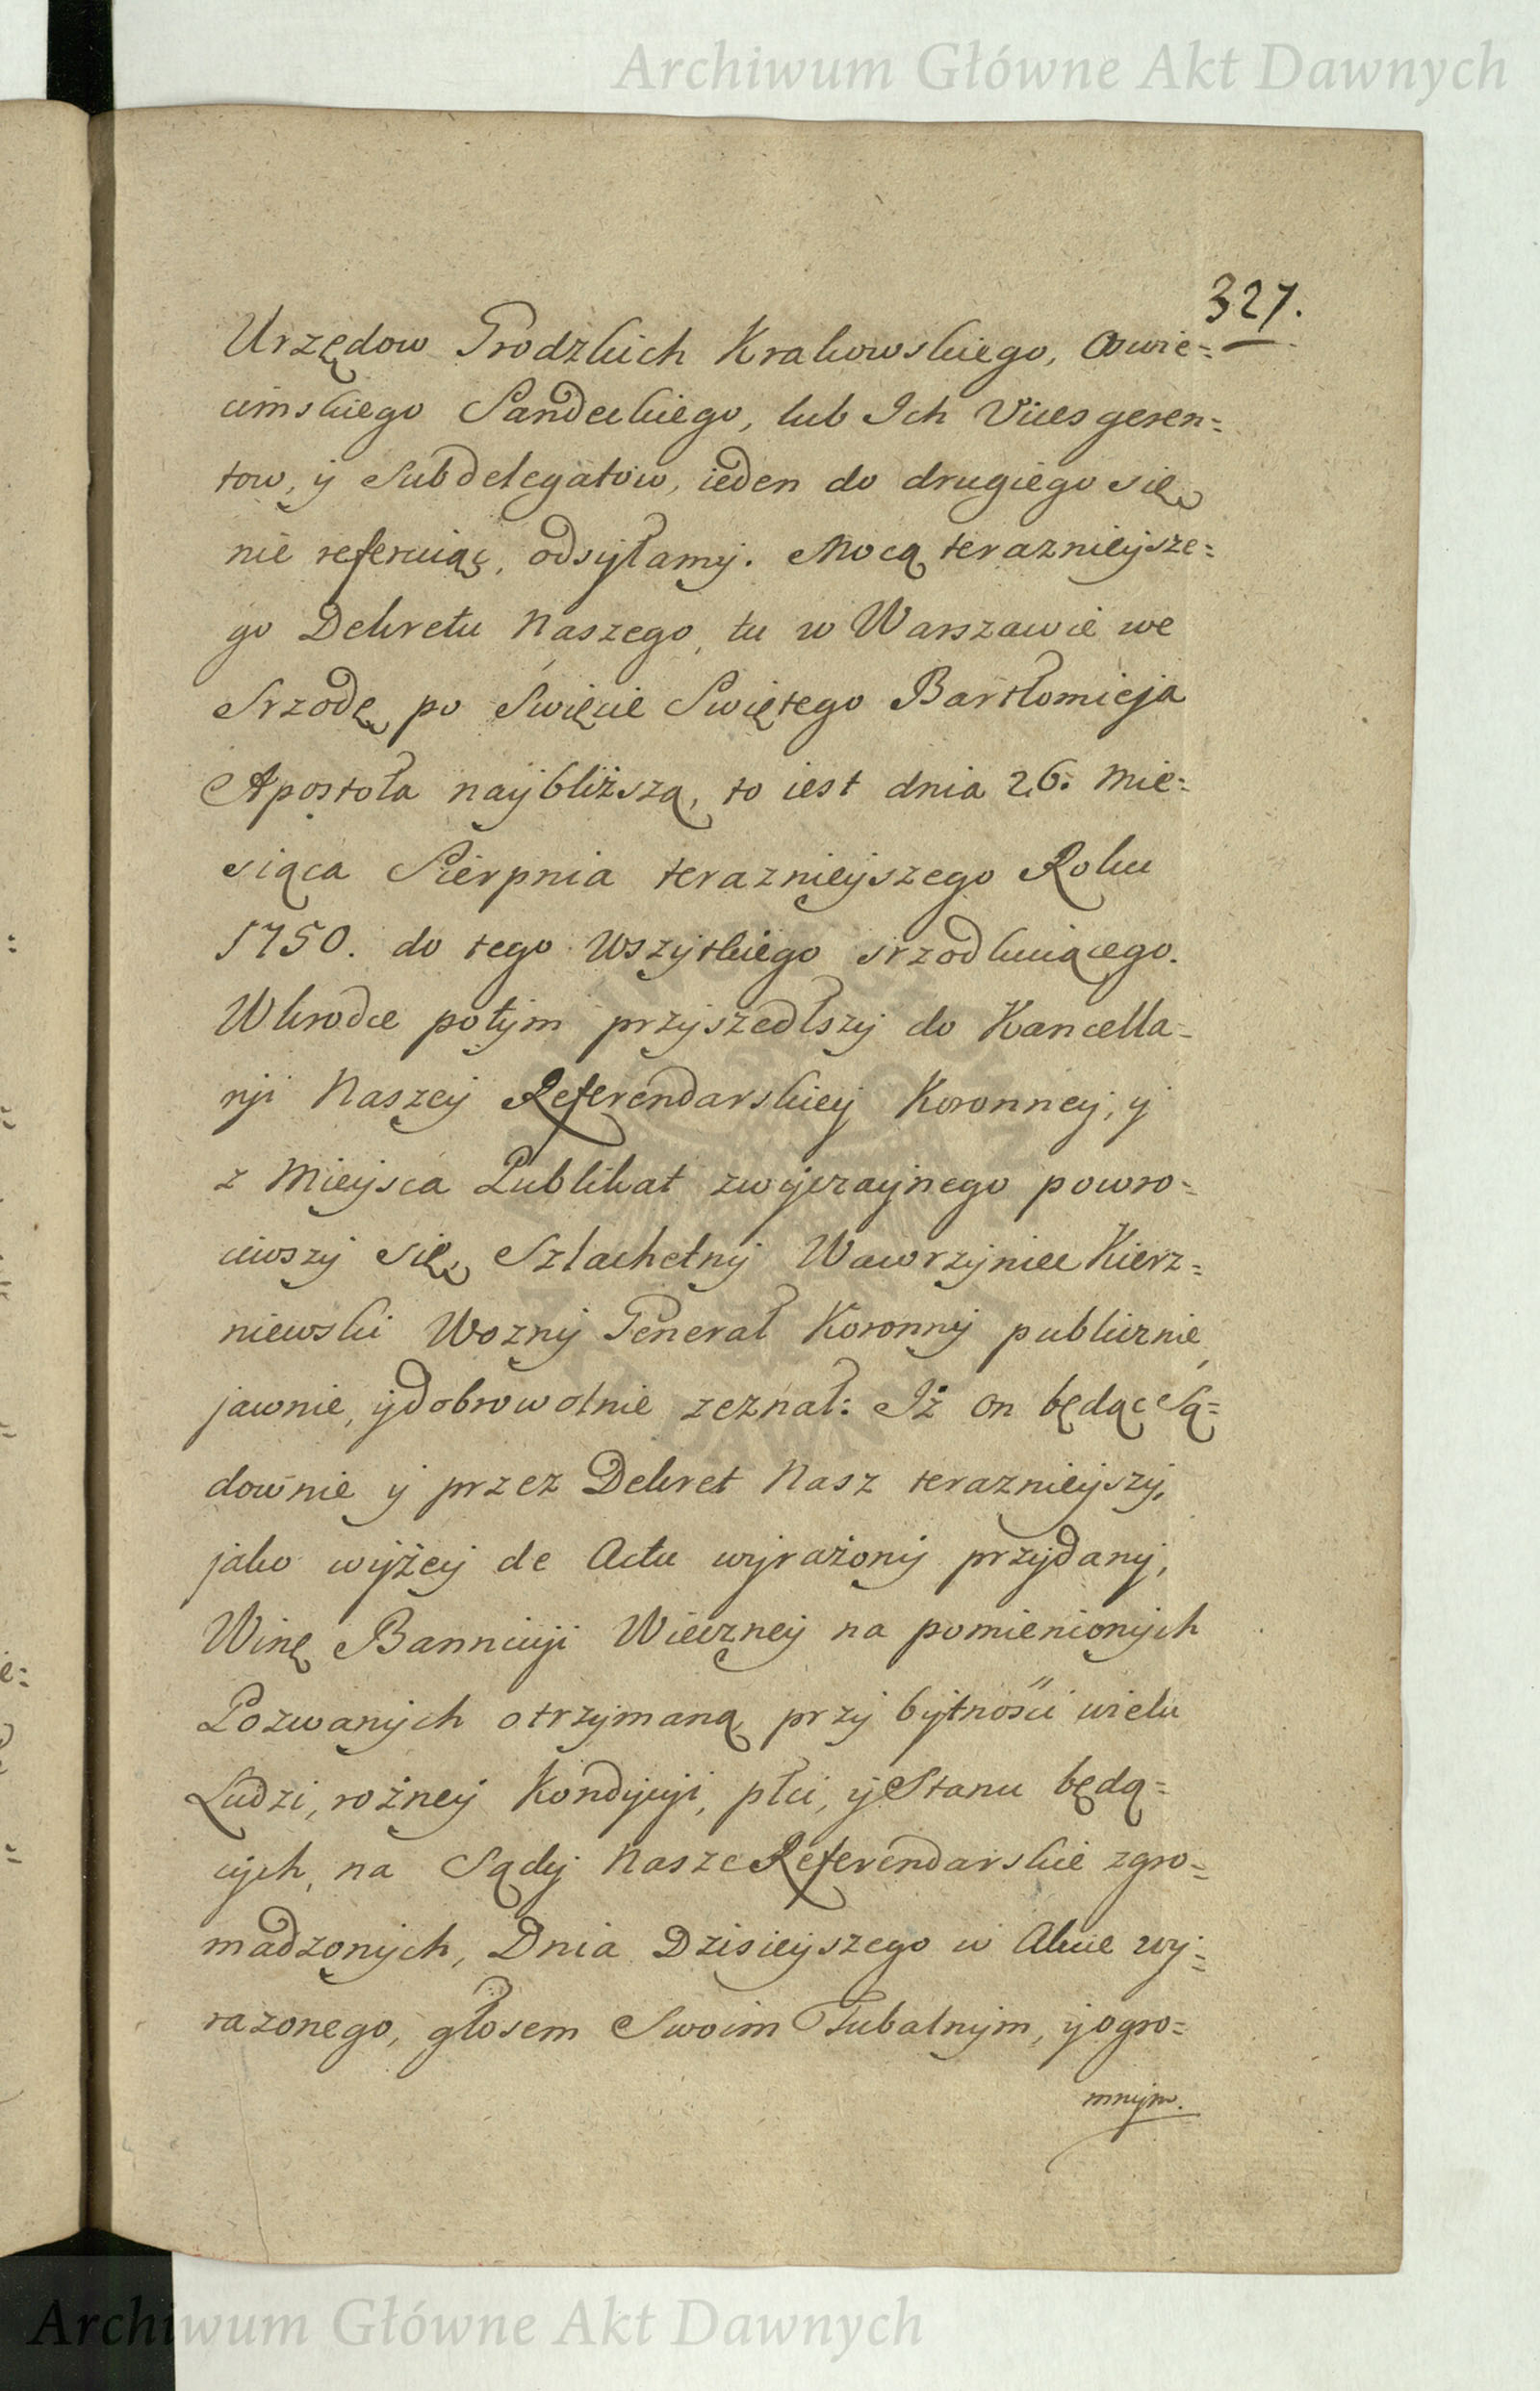 Archiwum Główne Akt Dawnych
327.
Urzędow Grodzkich Krakowskiego, Oswie=
cimskiego Sandeckiego, lub Ich Vicesgeren=
tow, y Subdelegatow, ieden do drugiego się
nie referuiąc, odsyłamy. Mocą teraznieysze=
go Dekretu Naszego, tu w Warszawie we
Srzodę po Swięcie Swiętego Bartłomieja
Apostoła naybliższą, to iest dnia 26. Mie=
siąca Sierpnia teraznieyszego Roku
1750. do tego wszytkiego srzodkuiącego.
Wkrodce potym przyszedłszy do Kancella=
ryi Naszey Referendarskiey Koronney, y
z Mieysca Publikat zwyczaynego powro=
ciwszy się Szlachetny Wawrzyniec Kierz=
niewski Wozny Generał Koronny publicznie,
jawnie, y dobrowolnie zeznał: Iż on będąc Są=
downie y przez Dekret Nasz teraznieyszy,
jako wyżey de Actu wyrażony przydany,
Winę Bannicyi Wieczney na pomienionych
Pozwanych otrzymaną przy bytności wielu
Ludzi, rożney Kondycyi, płci, y Stanu będą=
cych, na Sądy Nasze Referendarskie zgro=
madzonych, Dnia Dzisieyszego w Akcie wy=
razonego, głosem Swoim Tubalnym, y ogro=
mnym.
Archiwum Główne Akt Dawnych